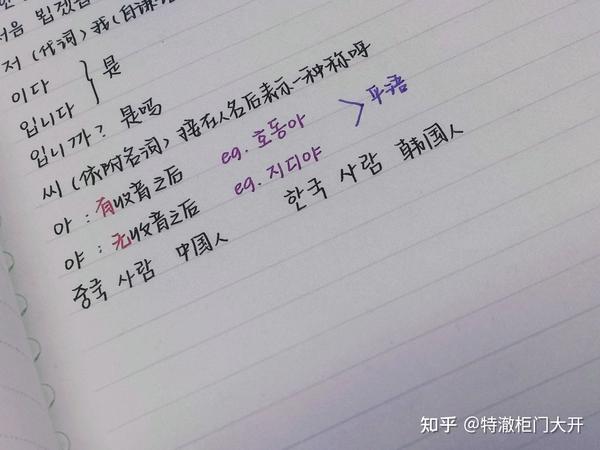 처음 뵙겠습
저 (代词) 我 (自谦
이다
입니다 } 是
입니까? 是吗
씨 (依附名词) 接在人名后表示一种称呼
아 : 有收音之后 eg. 호동아
야 : 无收音之后 eg. 지디야 > 平语
중국 사람 中国人 한국 사람 韩国人
知乎 @特澈柜门大开